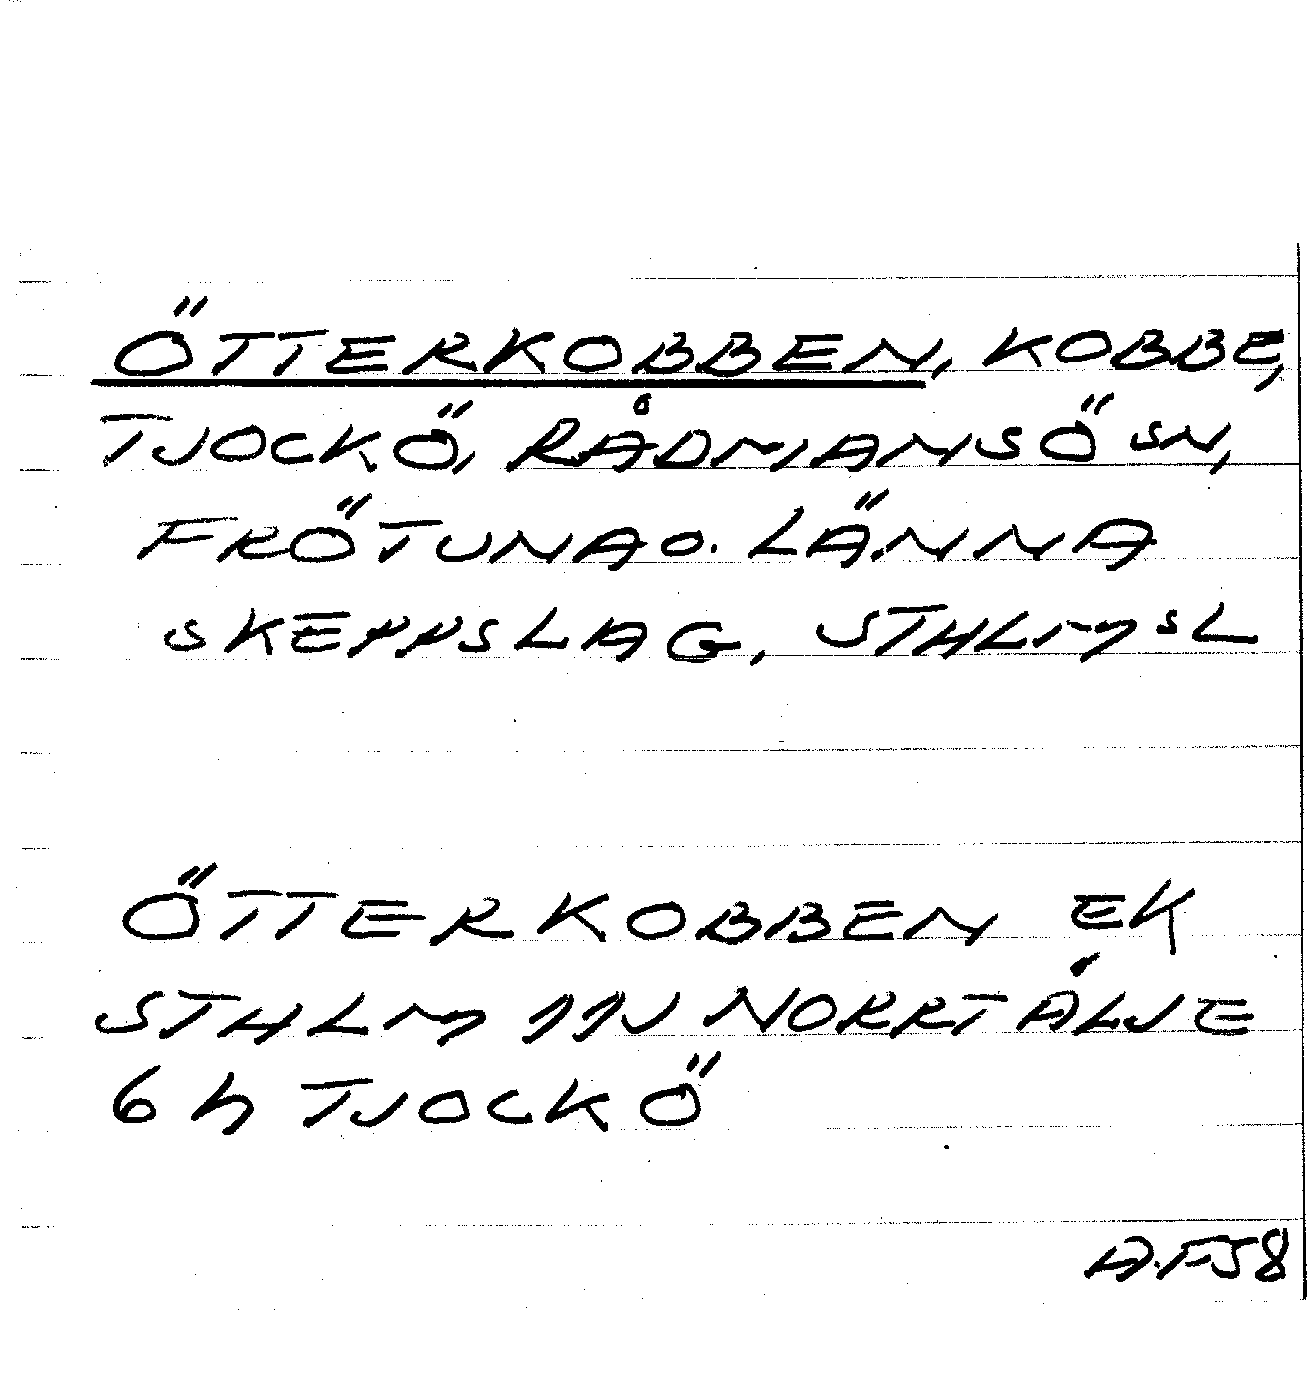 ÖTTERKOBBEN, KOBBE,
TJOCKÖ, RÅDMANSÖ SN,
FRÖTUNA O. LÄNNA
SKEPPSLAG, STHLMSL
ÖTTERKOBBEN EK
STHLM 11J NORRTÄLJE
6 h TJOCKÖ
A.F58